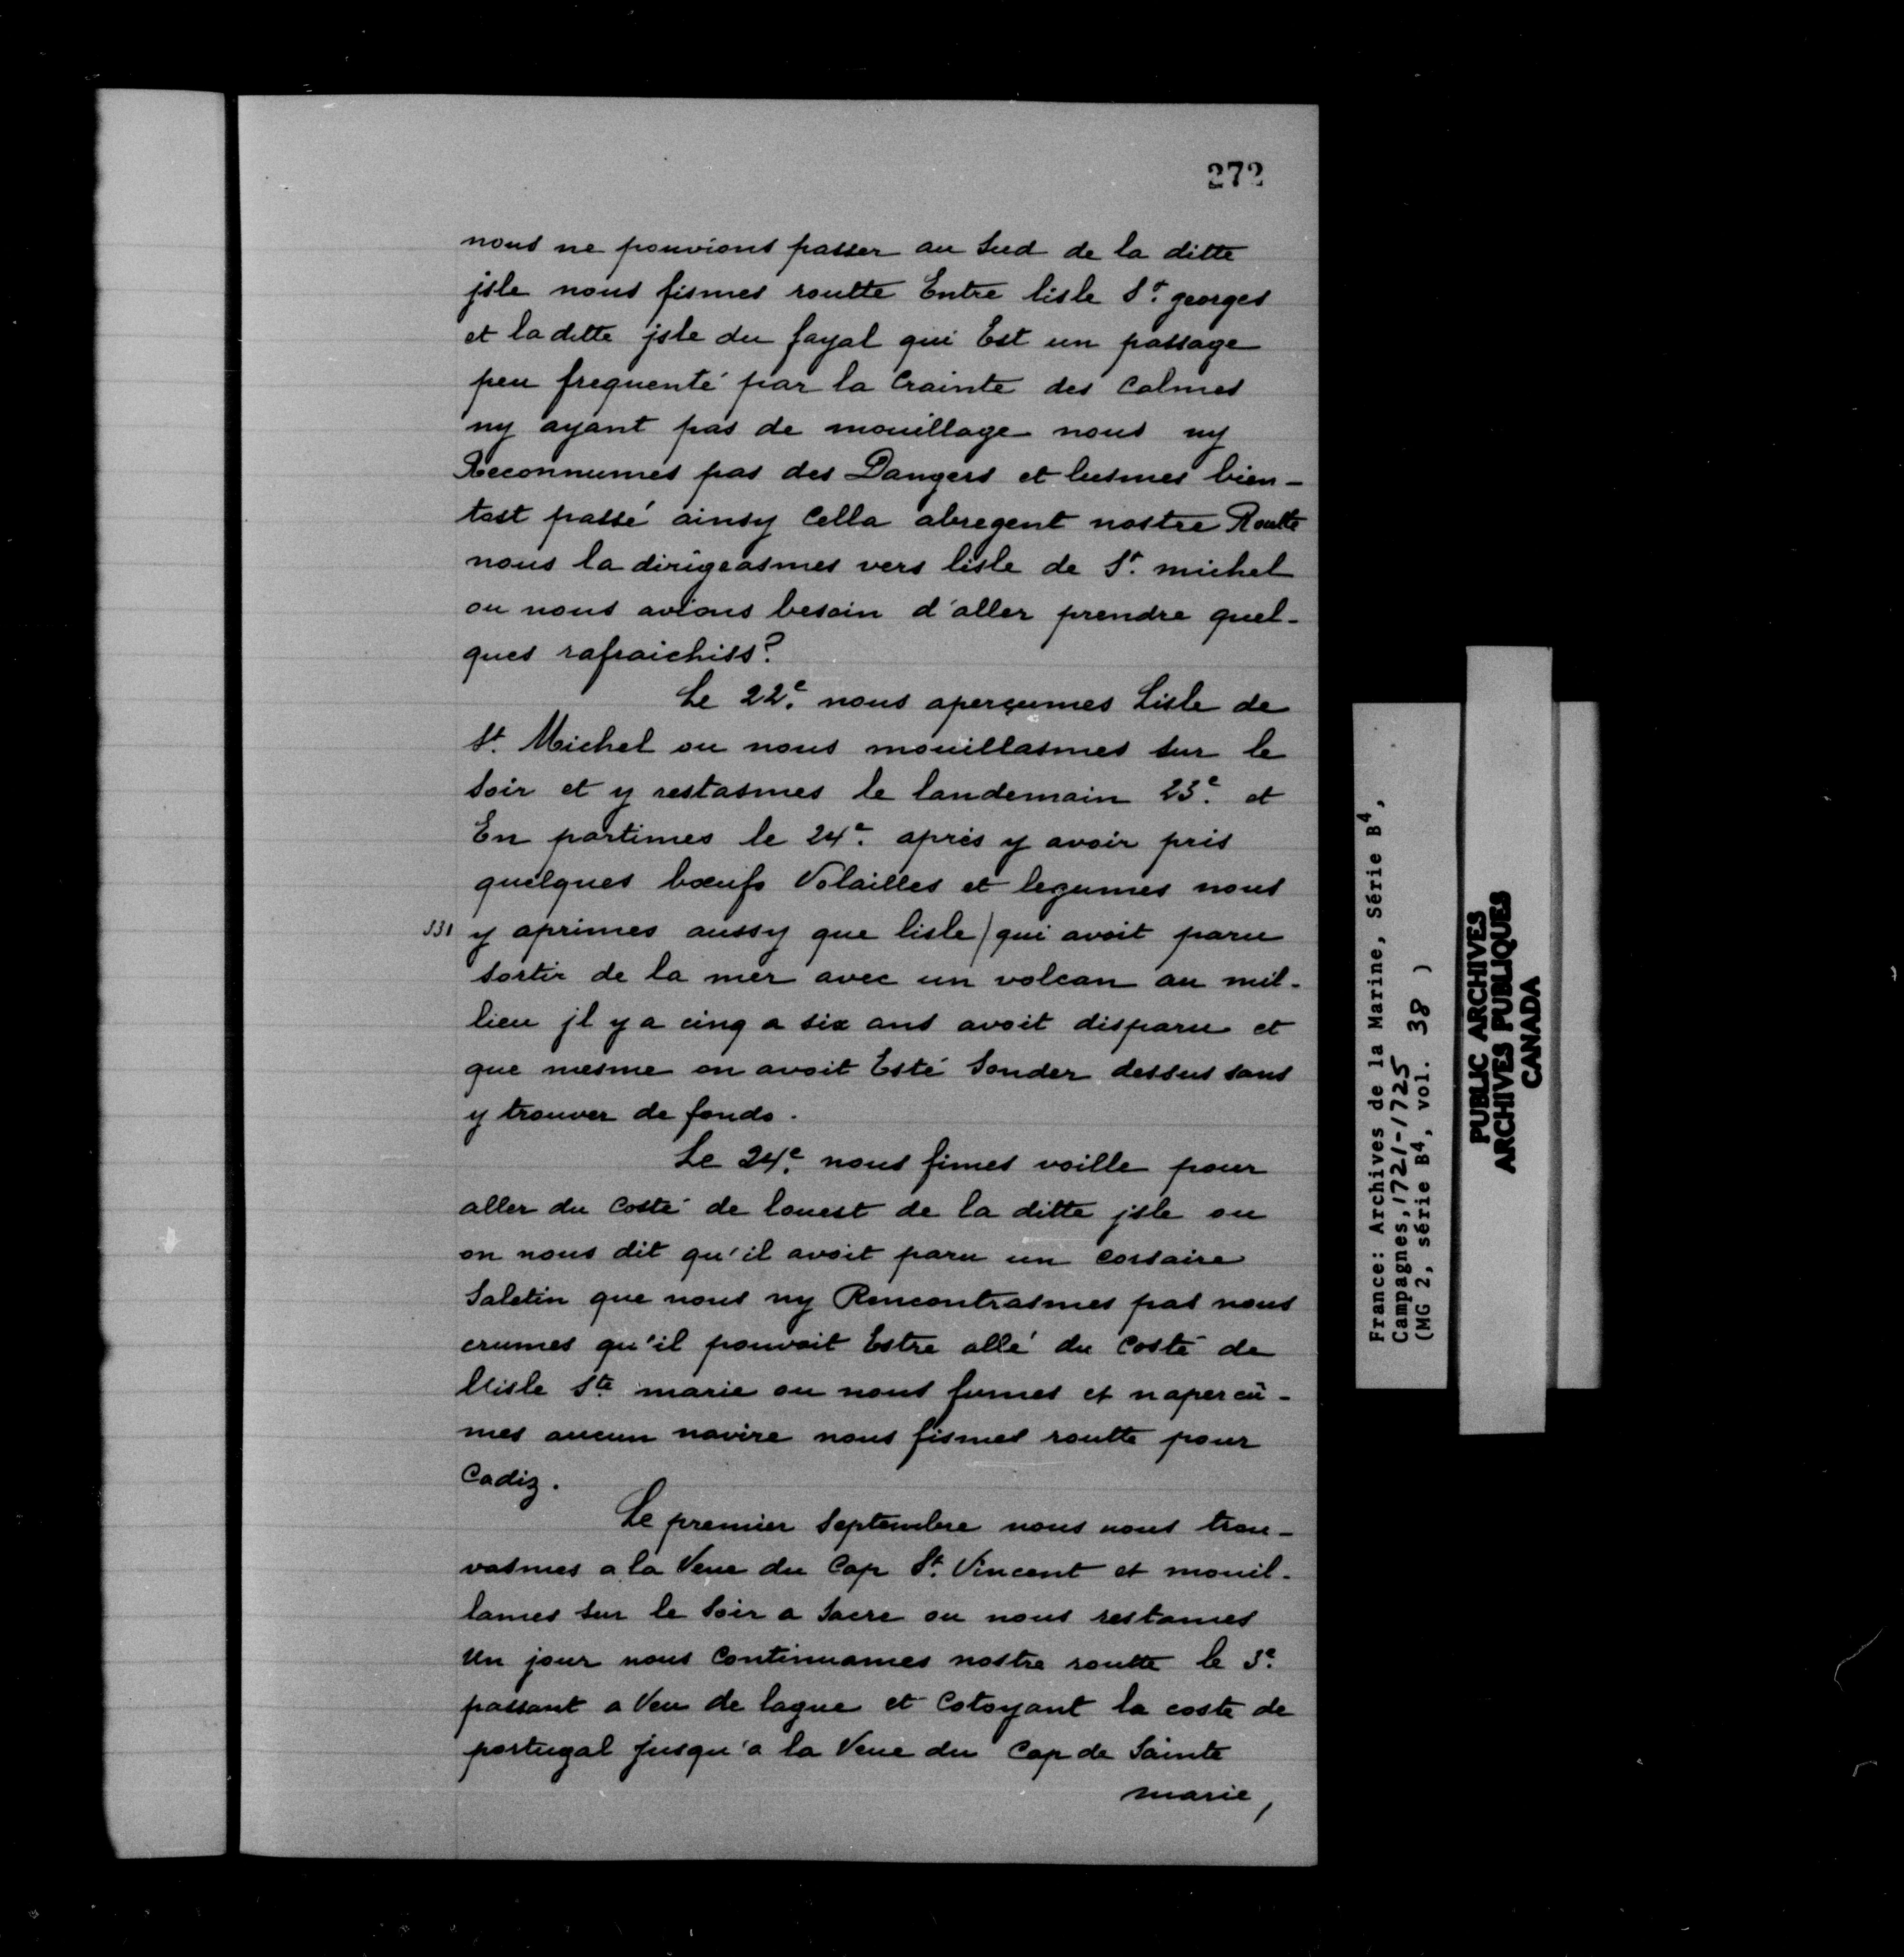 272
nous ne pouvions passer au Sud de la ditte
jsle nous fismes routte Entre lisle St. georges
et la ditte jsle du fayal qui Est un passage
peu frequenté par la Crainte des Calmes
ny ayant pas de mouillage nous ny
Reconnumes pas des Dangers et lusmes bien-
tost passé ainsy Cella abregent nostre Routte
nous la dirigeasmes vers lisle de St. michel
ou nous avions besoin d'aller prendre quel-
ques rafraichiss?
Le 22e. nous aperçumes Lisle de
St. Michel ou nous mouillasmes sur le
Soir et y restasmes le landemain 23e. et
En partimes le 24e. après y avoir pris
quelques bœufs Volailles et legumes nous
331 y aprimes aussy que lisle / qui avoit paru
sortir de la mer avec un volcan au mil-
lieu jl y a cinq a six ans avoit disparu et
que mesme on avoit Esté Sonder dessus sans
y trouver de fonds.
Le 24e. nous fimes voille pour
aller du Costé de louest de la ditte jsle ou
on nous dit qu'il avoit paru un corsaire
Saletin que nous ny Rencontrasmes pas nous
crumes qu'il pouvoit Estre allé du Costé de
llisle Ste marie ou nous fumes et n apercû-
mes aucun navire nous fismes routte pour
Cadiz.
Le premier Septembre nous nous trou-
vasmes a la Veue du Cap St. Vincent et mouil-
lames sur le Soir a Sacre ou nous restames
Un jour nous Continuames nostre routte le 3e.
passant a Veu de lague et Cotoyant la coste de
portugal jusqu'a la Veue du Cap de Sainte
marie,
France: Archives de la Marine, Série B4,
Campagnes, 1721-1725
(MG 2, série B4, vol. 38 )
PUBLIC ARCHIVES
ARCHIVES PUBLIQUES
CANADA